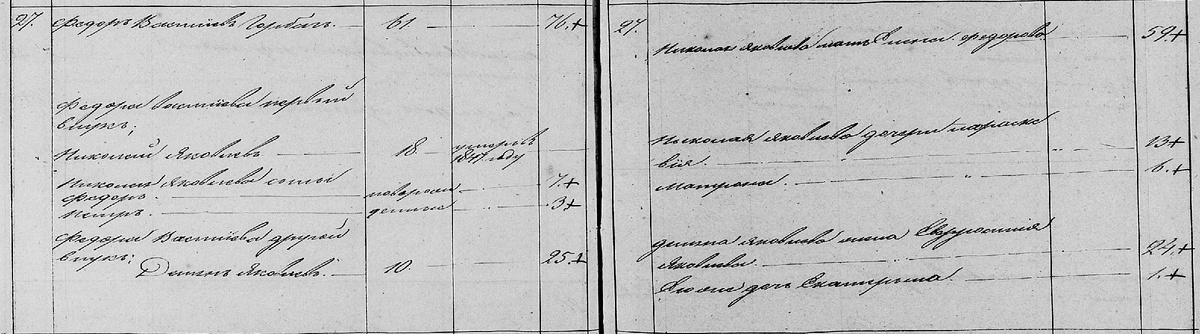 27. Федоръ Васильевъ Горбачъ. 61. 76.+
Федора Васильева первый
внукъ;
Николай Яковлевъ 18 умеръ въ
1847 году
Николая Яковлева сыновья
Федоръ. новорож 7.+
Петръ. денные 3+
Федора Васильева другой
внукъ;
Демьянъ Яковлевъ. 10. 25.+
27.
Николая Яковлева мать Елена Федорова 59+
Николая Яковлева дочери Параске
вия. 13+
Матрена. 6.+
Демьяна Яковлева жена Евфросиния
Яковлева. 24.+
Его дочь Екатерина. 1.+